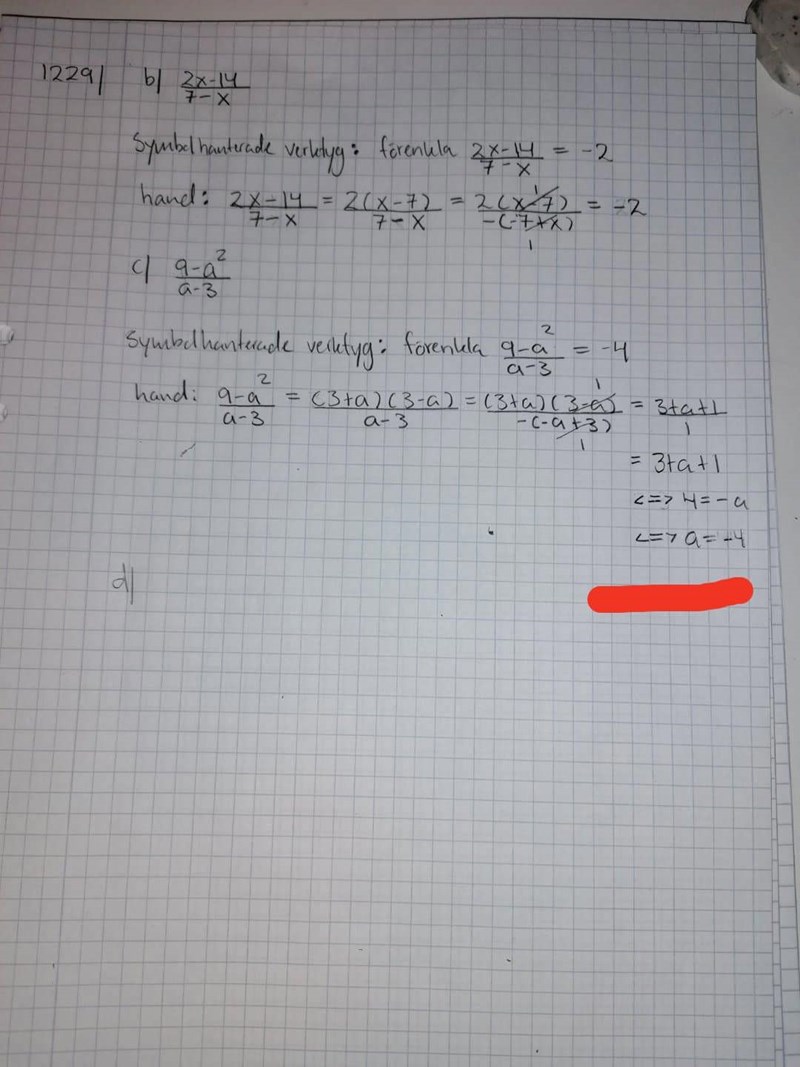 1229/ b/ 2x-14/7-x
Symbolhanterade verktyg: förenkla 2x-14/7-x = -2
hand: 2x-14/7-x = 2(x-7)/7-x = 2(x-7)/-(-7+x) = -2
1
1
c/ 9-a²/a-3
Symbolhanterade verktyg: förenkla 9-a²/a-3 = -4
hand: 9-a²/a-3 = (3+a)(3-a)/a-3 = (3+a)(3-a)/-(-a+3) = 3+a+1/1
1
1
= 3+a+1
<=> 4=-a
<=> a=-4
d/